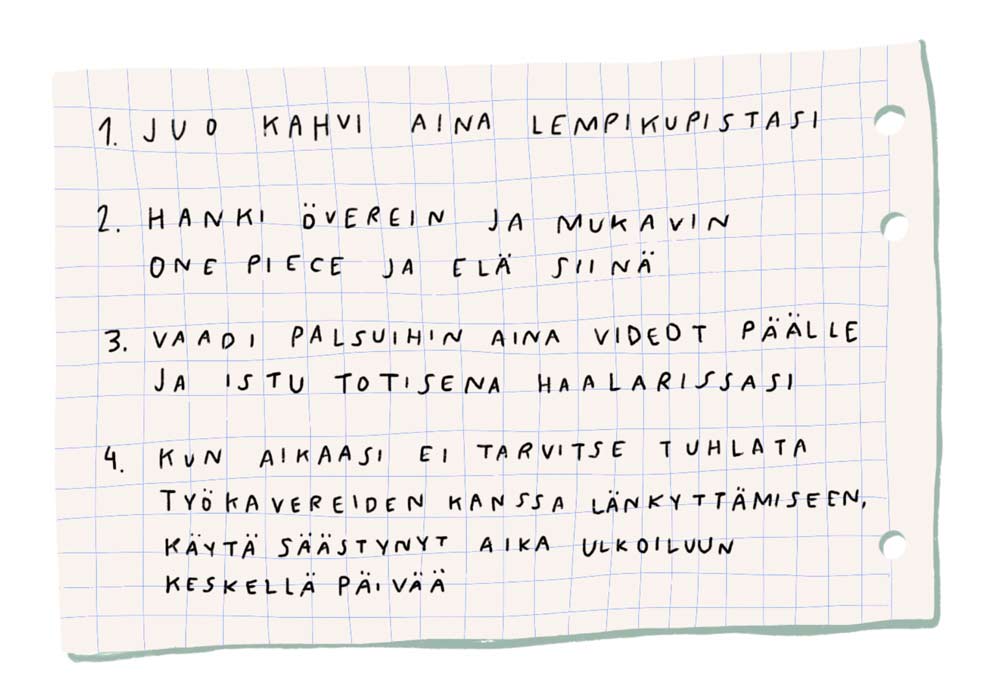 1. JUO KAHVI AINA LEMPIKUPISTASI
2. HANKI ÖVEREIN JA MUKAVIN
ONE PIECE JA ELÄ SIINÄ
3. VAADI PALSUIHIN AINA VIDEOT PÄÄLLE
JA ISTU TOTISENA HAALARISSASI
4. KUN AIKAASI EI TARVITSE TUHLATA
TYÖKAVEREIDEN KANSSA LÄNKYTTÄMISEEN,
KÄYTÄ SÄÄSTYNYT AIKA ULKOILUUN
KESKELLÄ PÄIVÄÄ